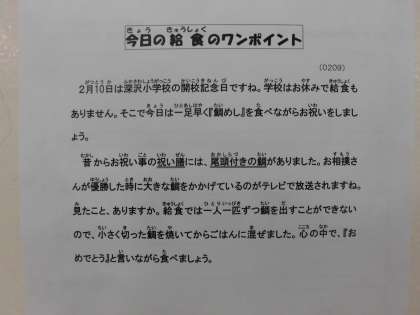 今日の給食のワンポイント
(0209)
2月10日は深沢小学校の開校記念日ですね。学校はお休みで給食も
ありません。そこで今日は一足早く『鯛めし』を食べながらお祝いをしまし
ょう。
昔からお祝い事の祝い膳には、尾頭付きの鯛がありました。お相撲さ
んが優勝した時に大きな鯛をかかげているのがテレビで放送されますね。
見たこと、ありますか。給食では一人一匹ずつ鯛を出すことができない
ので、小さく切った鯛を焼いてからごはんに混ぜました。心の中で、『お
めでとう』と言いながら食べましょう。